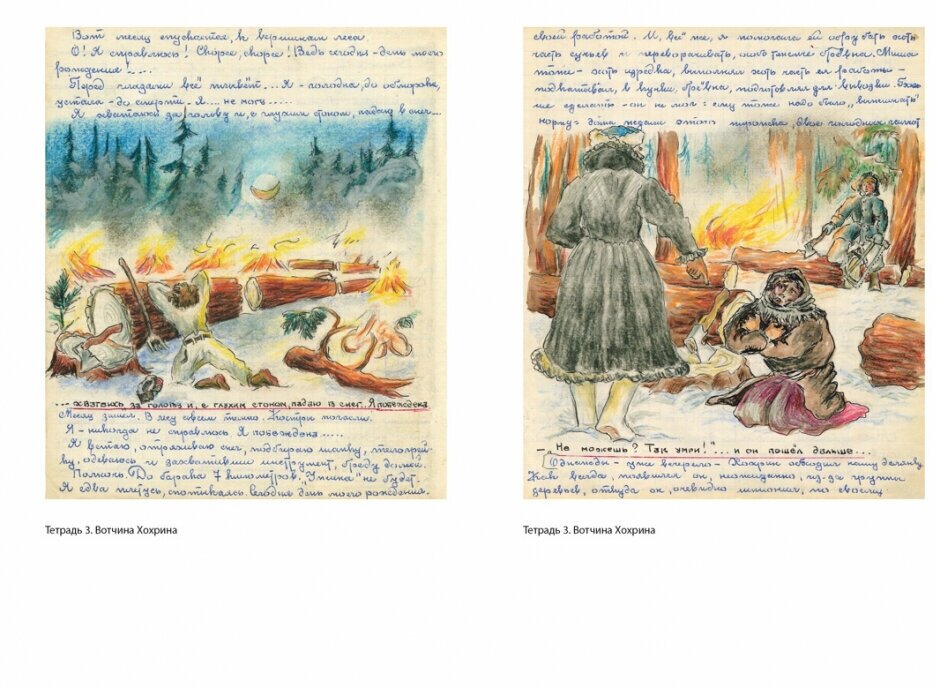 Вот месяц спускается, к вершинам леса.
О! Я справлюсь! Скорее, скорее! Ведь сегодня - день моего
рождения!....
Перед глазами всё плывёт.... Я - голодна, до обморока,
устала - до смерти. Я.... не могу.....
Я хватаюсь за голову и, с глухим стоном, падаю в снег...
...хватаюсь за голову и, с глухим стоном, падаю в снег. Я побеждена
Месяц зашел. В лесу совсем темно. Костры погасли.
Я - никогда не справлюсь. Я побеждена.....
Я встаю, отряхиваю снег, подбираю шапку, телогрей-
ку, одеваюсь и захвативши инструмент, бреду домой.
Полночь. До барака 7 километров. Ужина не будет.
Я едва плетусь, спотыкаясь. Сегодня день моего рождения.
Тетрадь 3. Вотчина Хохрина
своей работой. И, всё же, я помогала ей обрубать хоть
часть сучьев и переворачивать, бревна. Миша
тоже - хоть изредка, выполнял хоть часть её работы -
подхватывал, в бревна, подготовляя для вывозки. Боль-
ше сделать - он не мог: ему тоже надо было „выполнять"
норму:
- Не можешь? Так умри!"... и он пошёл дальше...
Однажды - уже вечерело - Хохрин обходил нашу делянку.
Как всегда, появился он, неожиданно, из-за группы
деревьев, откуда он, очевидно шпионил, по своему
Тетрадь 3. Вотчина Хохрина